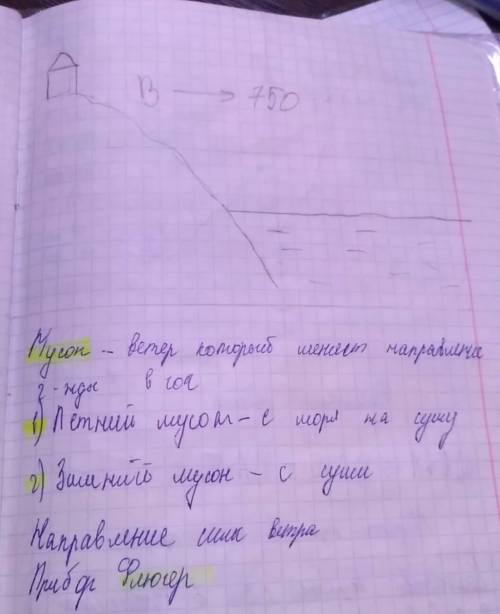 В → 750
Мусон - ветер который меняет направление
2-жды в год
1) Летний мусон - с моря на сушу
2) Зимний мусон - с суши
Направление силы ветра
Прибор Флюгер